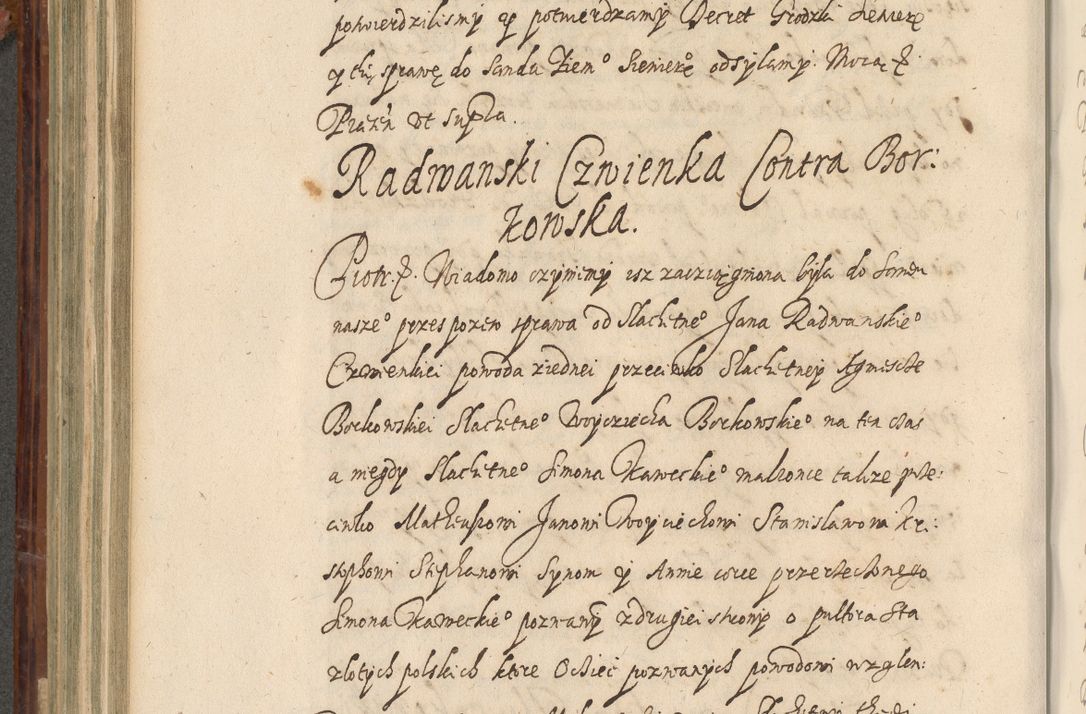 potwierdzilismy y potwierdzamy Decret Grodzki Siewierz
y thę sprawę do Sandu Ziem° Siewier° odsylamy. Mocą &.
Pisań ut supra.
Radwanski Czwienka Contra Bor:
kowska.
Piotr. &. Wiadomo czynimy isz zaczcięgniona byla do Sandu
nasze° przes pozew sprawa od Slachetne° Jana Radwanskie°
Czwienkiei powoda ziednei przeciwko Slachetney Agniescze
Borkowskiei Slachetne° Woycziecha Borkowskie° na ten czas
a niegdy Slachetne° Simona Kaweckie° malzonce takze prze:
ciwko Matheuszowi Janowi Woyciechowi Stanislawowi Kr:
sistphowi Stephanowi Synom y Annie corce przerzeczonego
Simona Kaweckie° pozwany zdrugiei strony o pultora sta
zlotych polskich ktore Ocziec pozwanych powodowi wzglen: